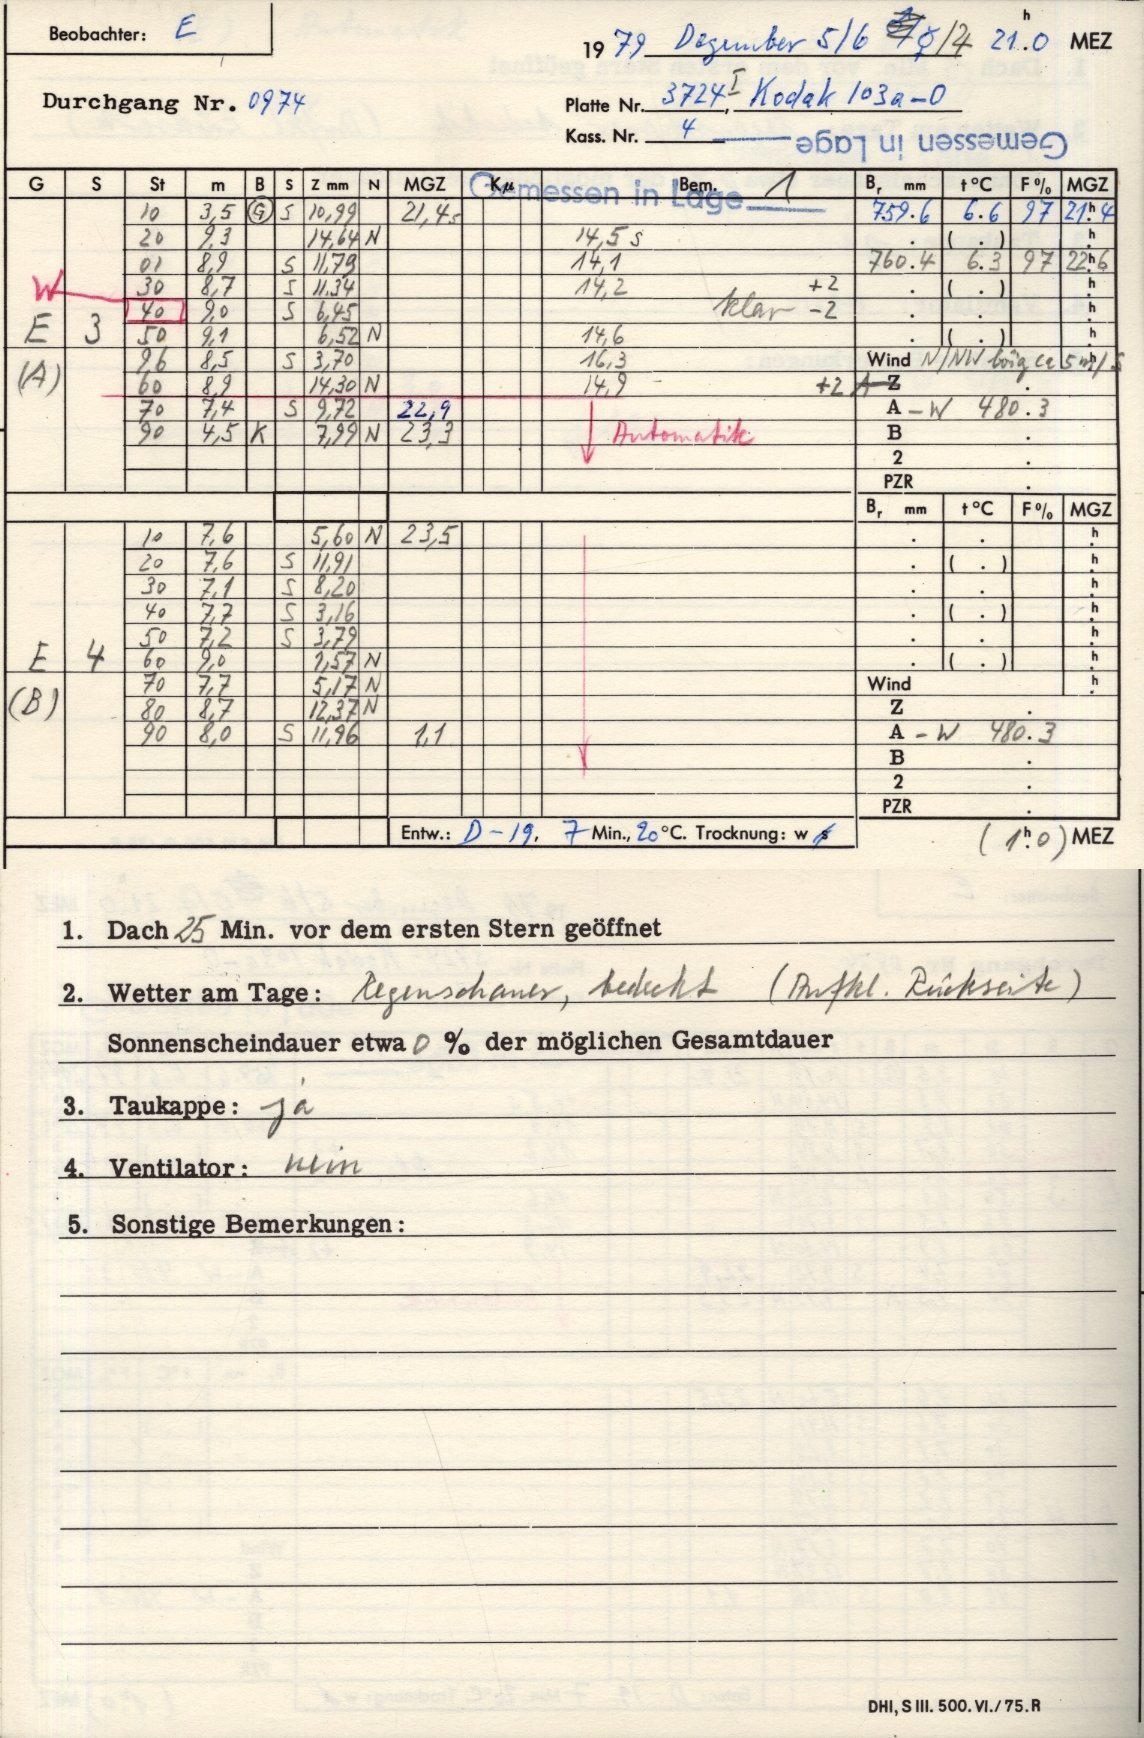 Beobachter: E
19 79 Dezember 5/6 ☿/♃ 21ʰ.0 MEZ
Durchgang Nr. 0974
Platte Nr. 3724 I, Kodak 103a-O
Kass. Nr. 4
Gemessen in Lage
G S St m B S Z mm N MGZ Kμ Bem. Br mm t°C F% MGZ
Gemessen in Lage 1
10 3,5 G S 10,99 21,4s 759.6 6.6 97 21ʰ.4
20 9,3 14,64 N 14,5 s . ( . ) ʰ.
01 8,9 S 11,79 14,1 760.4 6.3 97 22ʰ.6
W 30 8,7 S 11,34 14,2 +2 . ( . ) ʰ.
40 9,0 S 6,45 klar -2 . . ʰ.
E 3 50 9,1 6,52 N 14,6 . ( . ) ʰ.
96 8,5 S 3,70 16,3 Wind N/NW böig ca 5 m/s ʰ.
(A) 60 8,9 14,30 N 14,9 +2 A Z .
70 7,4 S 9,72 22,9 A - W 480.3
90 4,5 K 7,99 N 23,3 Automatik B .
2 .
PZR .
Br mm t°C F% MGZ
10 7,6 5,60 N 23,5 . . ʰ.
20 7,6 S 11,91 . ( . ) ʰ.
30 7,1 S 8,20 . . ʰ.
40 7,7 S 3,16 . ( . ) ʰ.
50 7,2 S 3,79 . . ʰ.
E 4 60 9,0 1,57 N . ( . ) ʰ.
70 7,7 5,17 N Wind ʰ.
(B) 80 8,7 12,37 N Z .
90 8,0 S 11,96 1,1 A - W 480.3
B .
2 .
PZR .
Entw.: D-19, 7 Min., 20 °C. Trocknung: w s
(1ʰ.0) MEZ
1. Dach 25 Min. vor dem ersten Stern geöffnet
2. Wetter am Tage: Regenschauer, bedeckt (Aufkl. Rückseite)
Sonnenscheindauer etwa 0 % der möglichen Gesamtdauer
3. Taukappe: ja
4. Ventilator: nein
5. Sonstige Bemerkungen:
DHI, S III. 500. VI./75. R